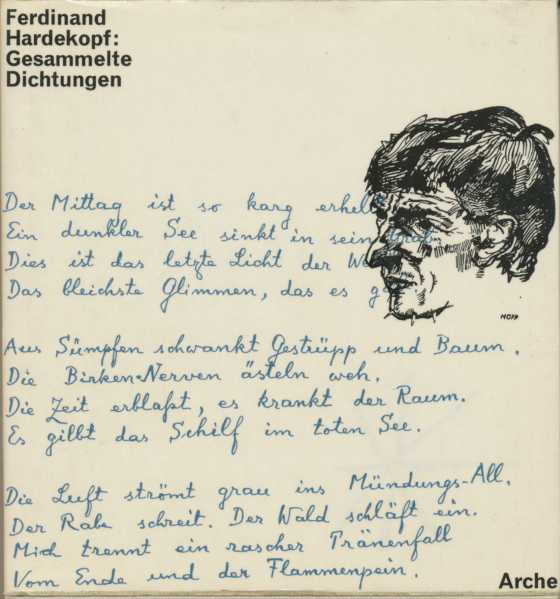 Ferdinand
Hardekopf:
Gesammelte
Dichtungen
Der Mittag ist so karg erhellt
Ein dunkler See sinkt in sein Grab.
Dies ist das letzte Licht der
Das bleichste Glimmen, das es
HOPP
Aus Sümpfen schwankt Gestrüpp und Baum.
Die Birken-Nerven ästeln weh.
Die Zeit erblaßt, es krankt der Raum.
Es gilbt das Schilf im toten See.
Die Luft strömt grau ins Mündungs-All.
Der Rabe schreit. Der Wald schläft ein.
Mich trennt ein rascher Tränenfall
Vom Ende und der Flammenpein.
Arche